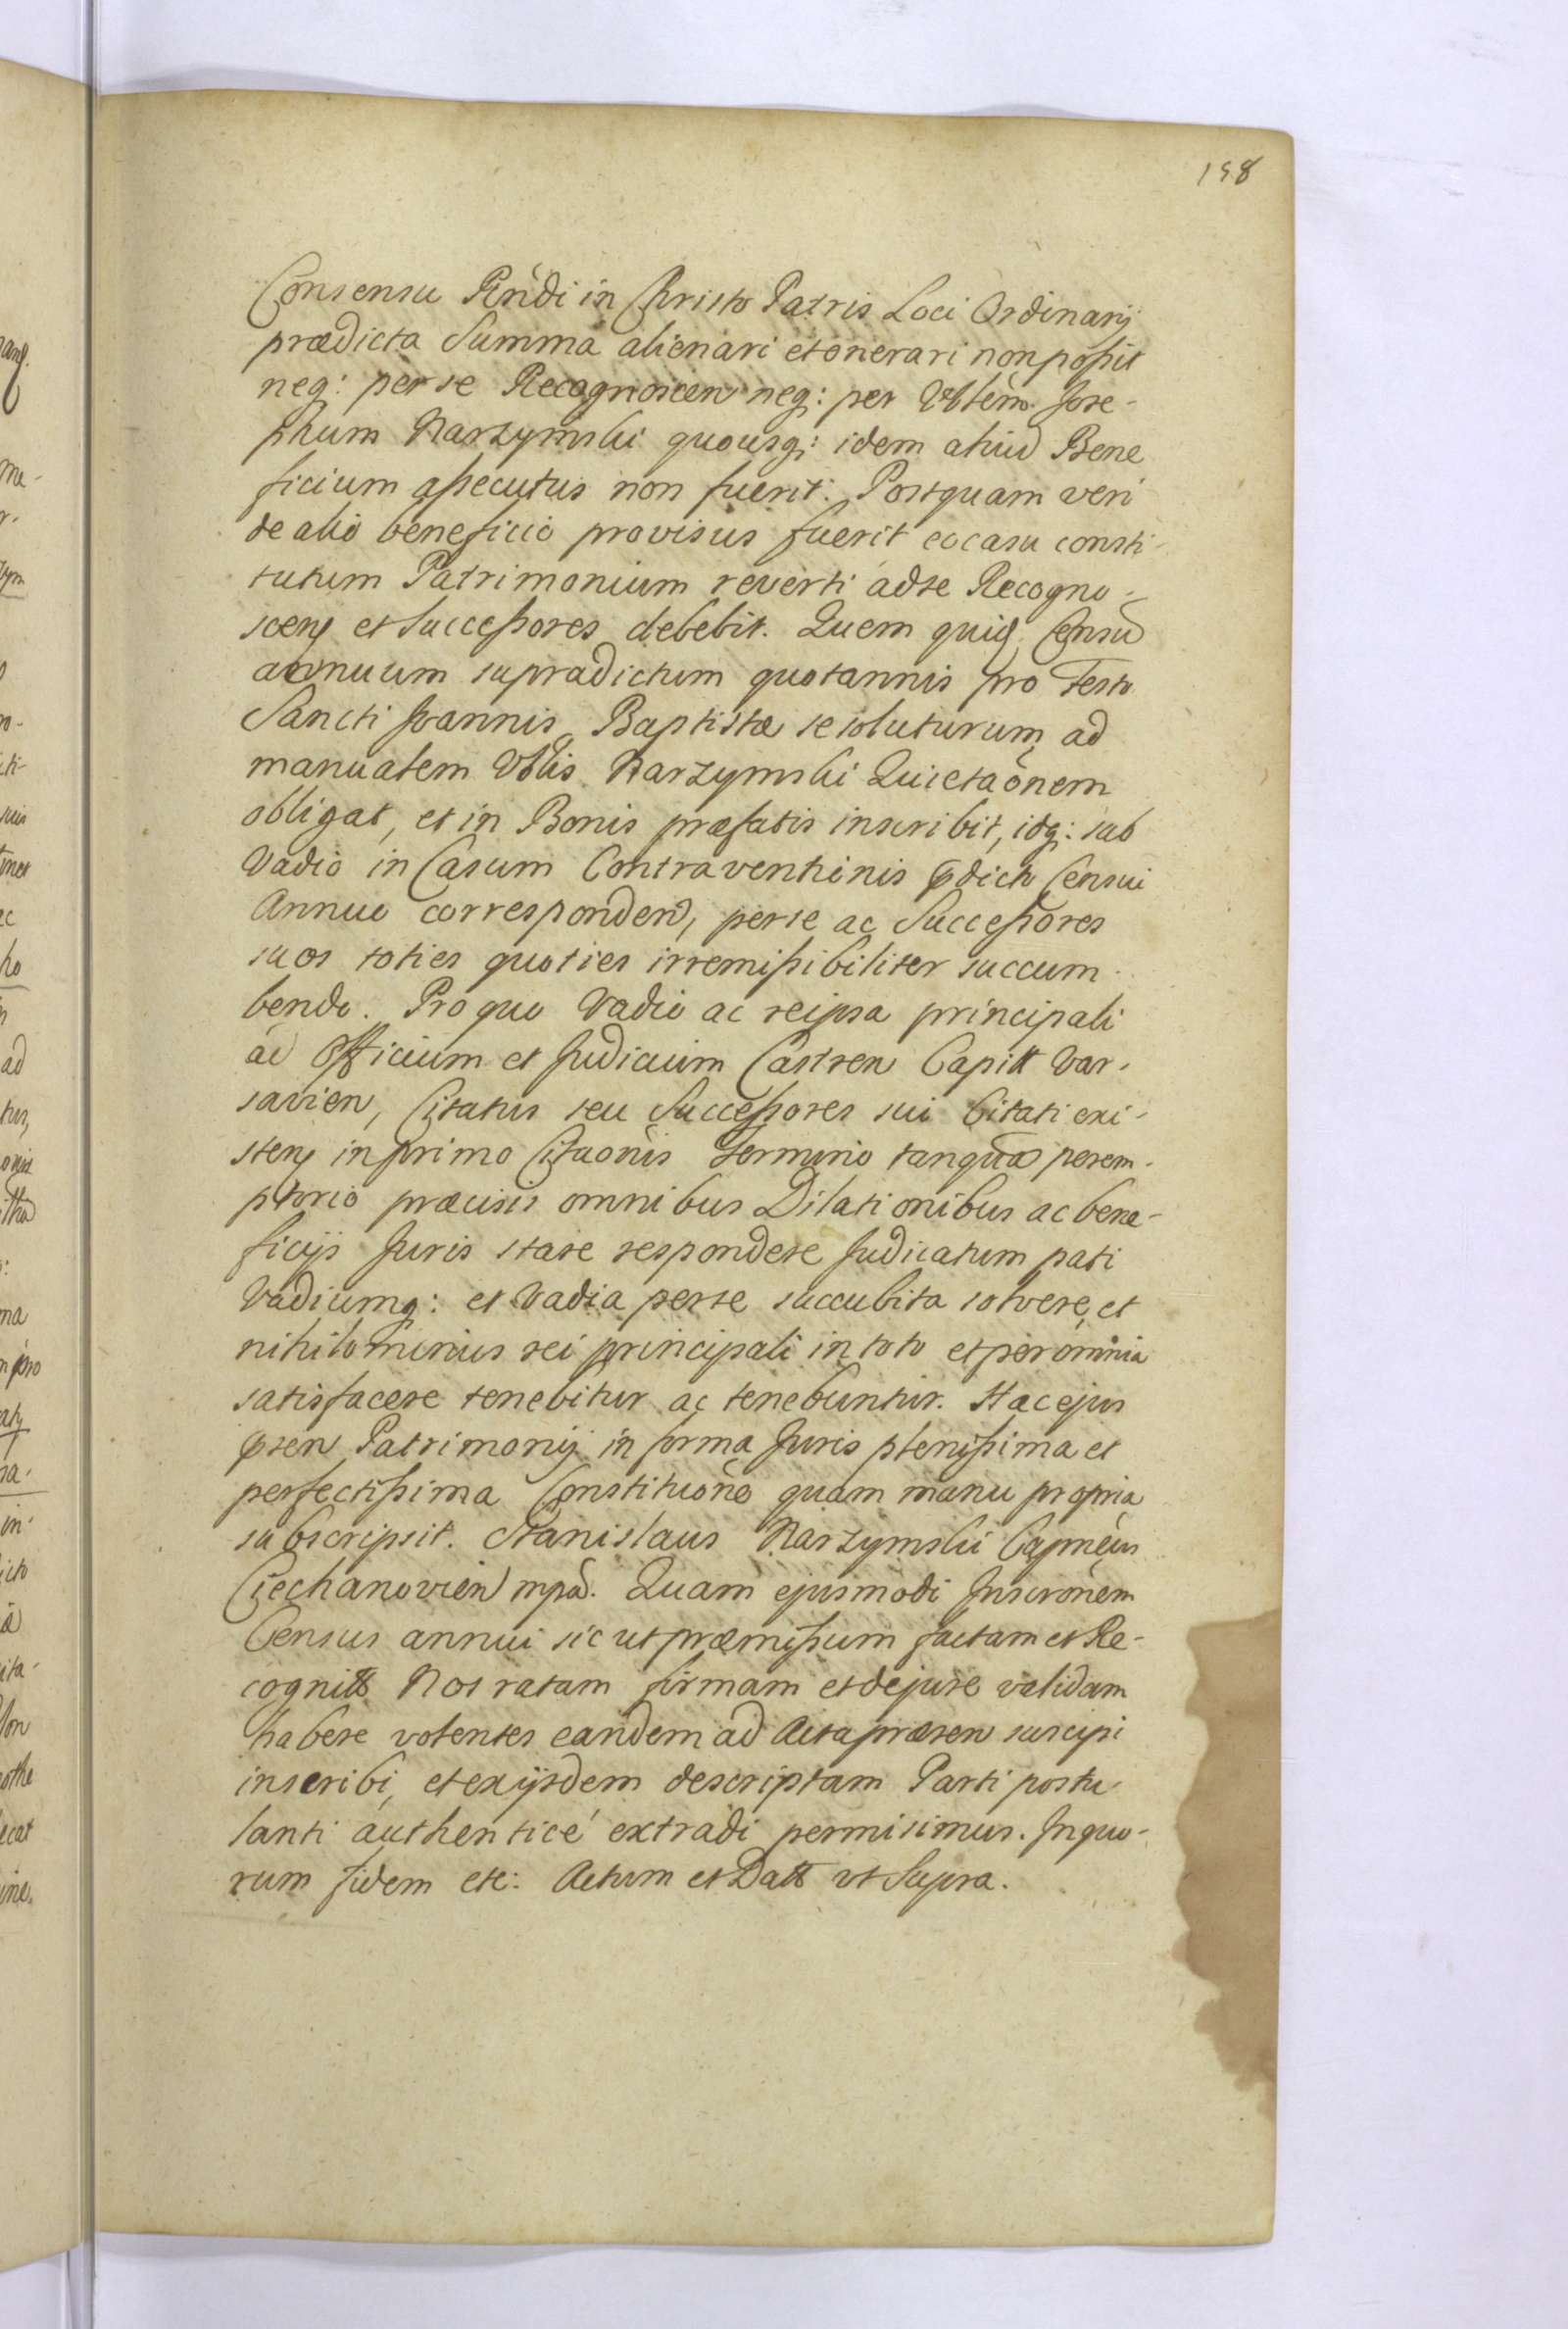 198
Consensu Rñdi in Christo Patris Loci Ordinarij
prædicta Summa alienari et onerari non possit
neq: per se Recognoscen neq: per Mgtem Jose-
phum Narzymski quousq: idem aliud Bene
ficium assecutus non fuerit. Postquam veri
de alio beneficio provisus fuerit eo casu consti-
tutum Patrimonium reverti ad se Recogno-
scens et Successores debebit. Quem quid. Censũ
annuum supradictum quotannis pro Festo
Sancti Joannis Baptistæ se soluturum ad
manualem Narzymski Quietaõnem
obligat, et in Bonis præfatis inscribit, idq: sub
Vadio in Casum Contraventinis p̃dicto Censui
Annuo corresponden, per se ac Successores
suos toties quoties irremissibiliter succum-
bendo. Pro quo Vadio ac re ipsa principali
ad Officium et Judicium Castren Capitt Var-
savien, Citatus seu Successores sui Citati exi-
stens in primo Citaonis Termino tanquã perem-
ptorio præcisis omnibus Dilationibus ac bene-
ficijs Juris stare respondere Judicatum pati
Vadiumq: et Vadia per se succubita solvere, et
nihilominus rei principali in toto et per omnia
satisfacere tenebitur ac tenebuntur. Hac ejus
p̃sen Patrimonij in forma Juris plenissima et
perfectissima Constituone quam manu propria
subscripsit. Stanislaus Narzymski Capneus
Ciechanovien mpã. Quam ejusmodi Inscronem
Census annui sic ut præmissum factam et Re-
cognitt Nos ratam firmam et de jure validam
habere volentes eandem ad Acta præsen suscipi
inscribi, et ex ijsdem descriptam Parti postu-
lanti authenticé extradi permisimus. In quo-
rum fidem etc: Actum et Datt ut Supra.